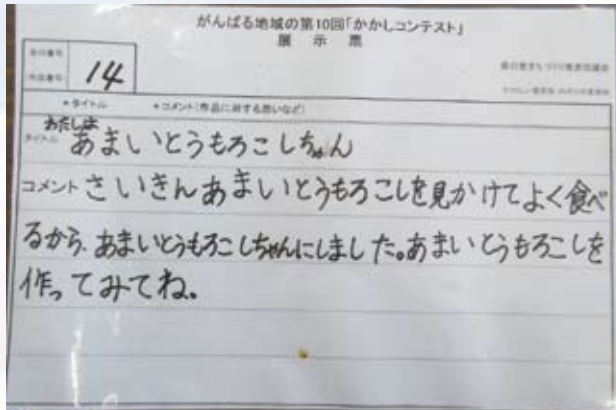 がんばる地域の第10回「かかしコンテスト」
展示票
14
*タイトル *コメント(作品に対する思いなど)
わたしは
タイトル あまいとうもろこしちゃん
コメント さいきんあまいとうもろこしを見かけてよく食べ
るから、あまいとうもろこしちゃんにしました。あまいとうもろこしを
作ってみてね。